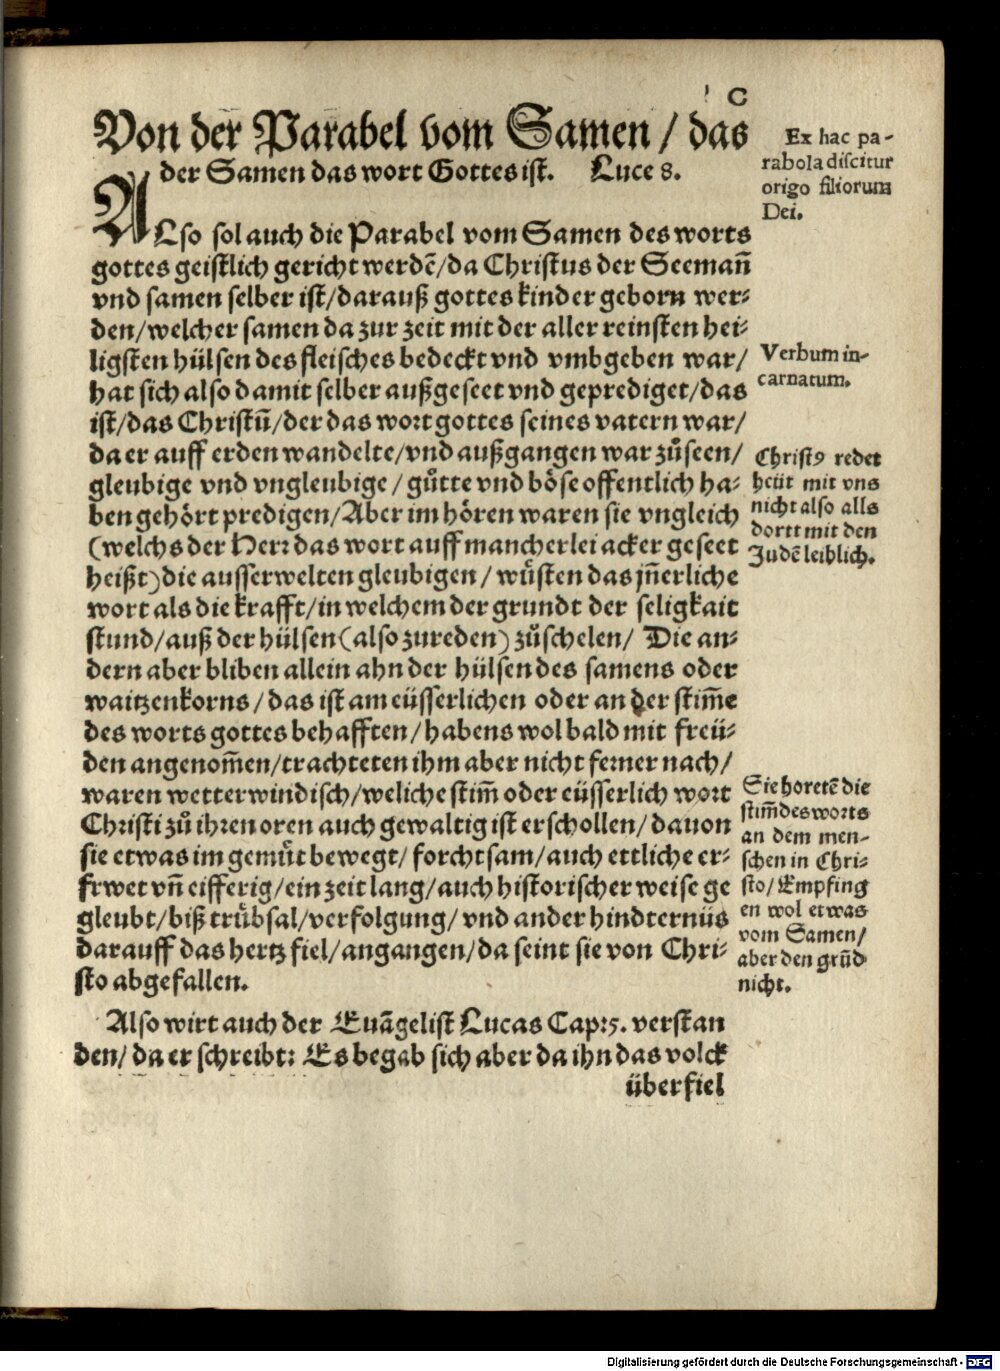 C
Von der Parabel vom Samen / das
der Samen das wort Gottes ist. Luce 8.
ALso sol auch die Parabel vom Samen des worts
gottes geistlich gericht werdẽ/da Christus der Seemañ
vnd samen selber ist/darauß gottes kinder geborn wer⸗
den/welcher samen da zur zeit mit der aller reinsten hei⸗
ligsten hülsen des fleisches bedeckt vnd vmbgeben war/
hat sich also damit selber außgeseet vnd geprediget/das
ist/das Christũ/der das wort gottes seines vatern war/
da er auff erden wandelte/vnd außgangen war zůseen/
gleubige vnd vngleubige / gůtte vnd böse offentlich ha⸗
ben gehört predigen/Aber im hören waren sie vngleich
(welchs der Herr das wort auff mancherlei acker geseet
heißt)die ausserwelten gleubigen / wůsten das jñerliche
wort als die krafft/in welchem der grundt der seligkait
stund/auß der hülsen(also zureden)zůschelen/ Die an⸗
dern aber bliben allein ahn der hülsen des samens oder
waitzenkorns/das ist am eüsserlichen oder an der stim̃e
des worts gottes behafften/habens wol bald mit freü⸗
den angenom̃en/trachteten ihm aber nicht ferner nach/
waren wetterwindisch/weliche stim̃ oder eüsserlich wort
Christi zů ihren oren auch gewaltig ist erschollen/dauon
sie etwas im gemůt bewegt/forchtsam/auch ettliche er⸗
frwet vñ eifferig/ein zeit lang/auch historischer weise ge
gleubt/biß trůbsal/verfolgung/vnd ander hindternüs
darauff das hertz fiel/angangen/da seint sie von Chri⸗
sto abgefallen.
Also wirt auch der Euãgelist Lucas Cap:5. verstan
den/da er schreibt: Es begab sich aber da ihn das volck
überfiel
Ex hac pa-
rabola discitur
origo filiorum
Dei.
Verbum in-
carnatum.
Christ9 redet
heüt mit vns
nicht also alls
dortt mit den
Judẽ leiblich.
Sie horetẽ die
stim̃ des worts
an dem men-
schen in Chri-
sto/Empfing
en wol etwas
vom Samen/
aber den grũd
nicht.
Digitalisierung gefördert durch die Deutsche Forschungsgemeinschaft - DFG